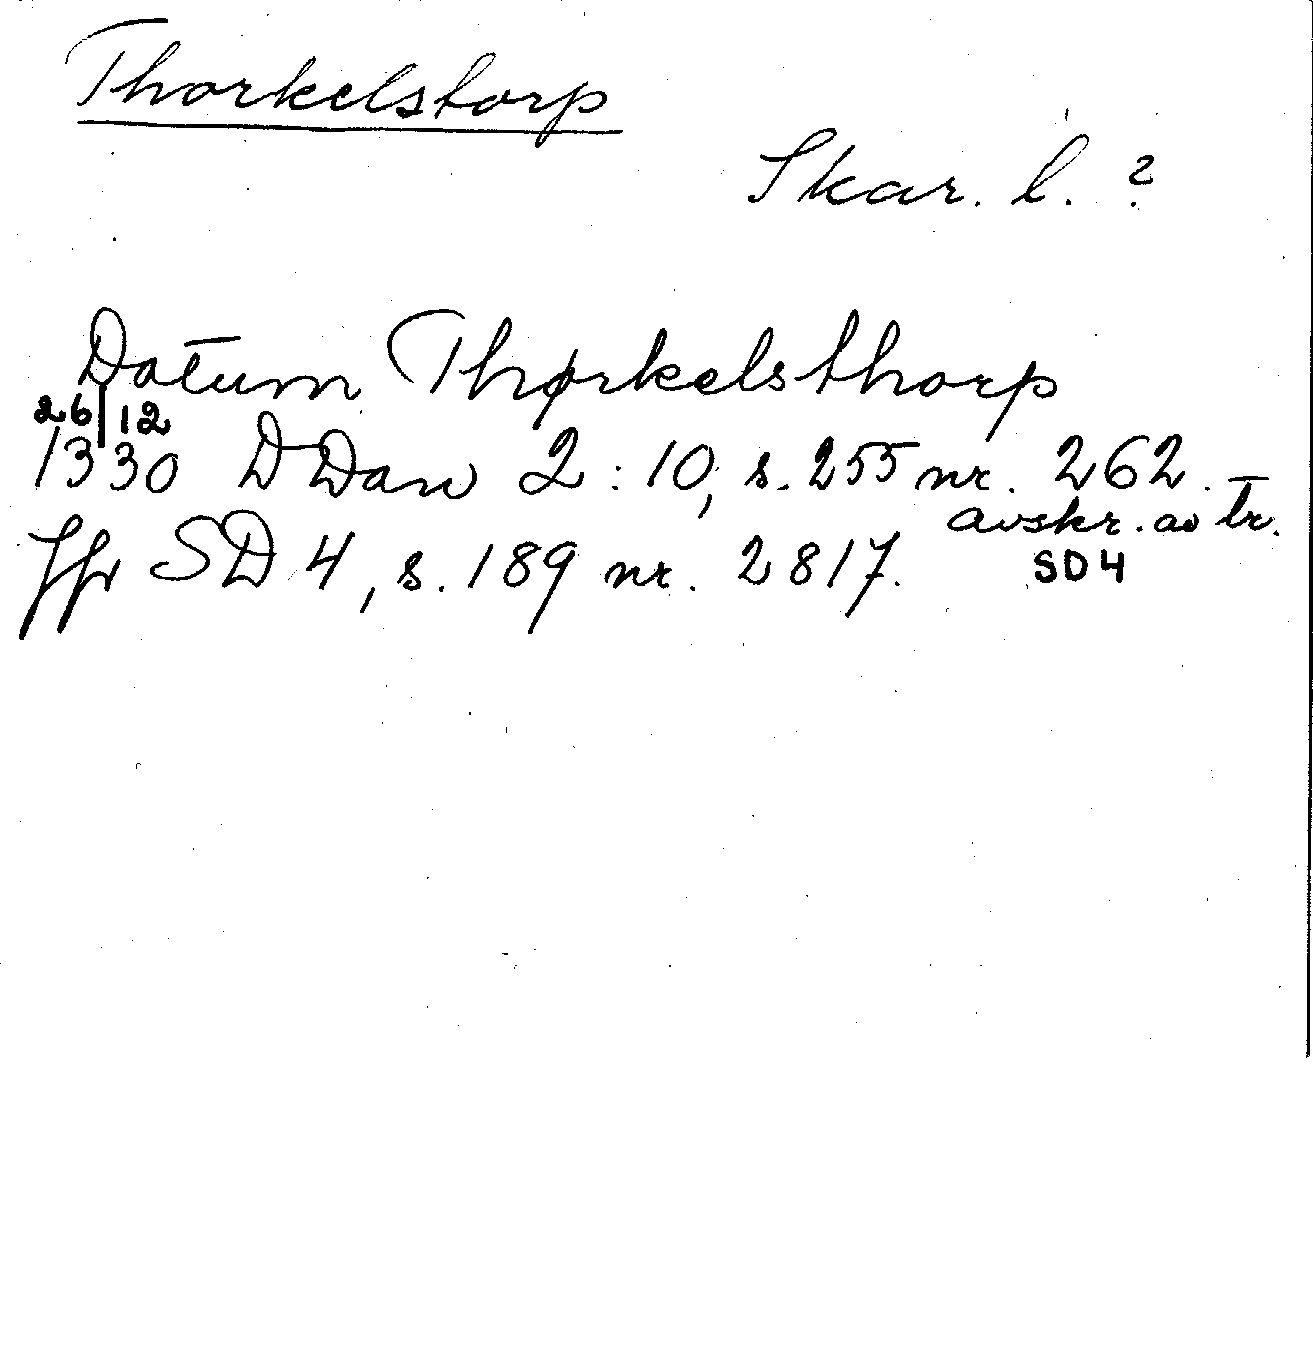 Thorkelstorp
Skar. l. ?
Datum Thørkelsthorp
26/12
1330 DDan 2:10, s. 255 nr. 262.
avskr. av tr.
Jfr SD 4, s. 189 nr. 2817.
SD4